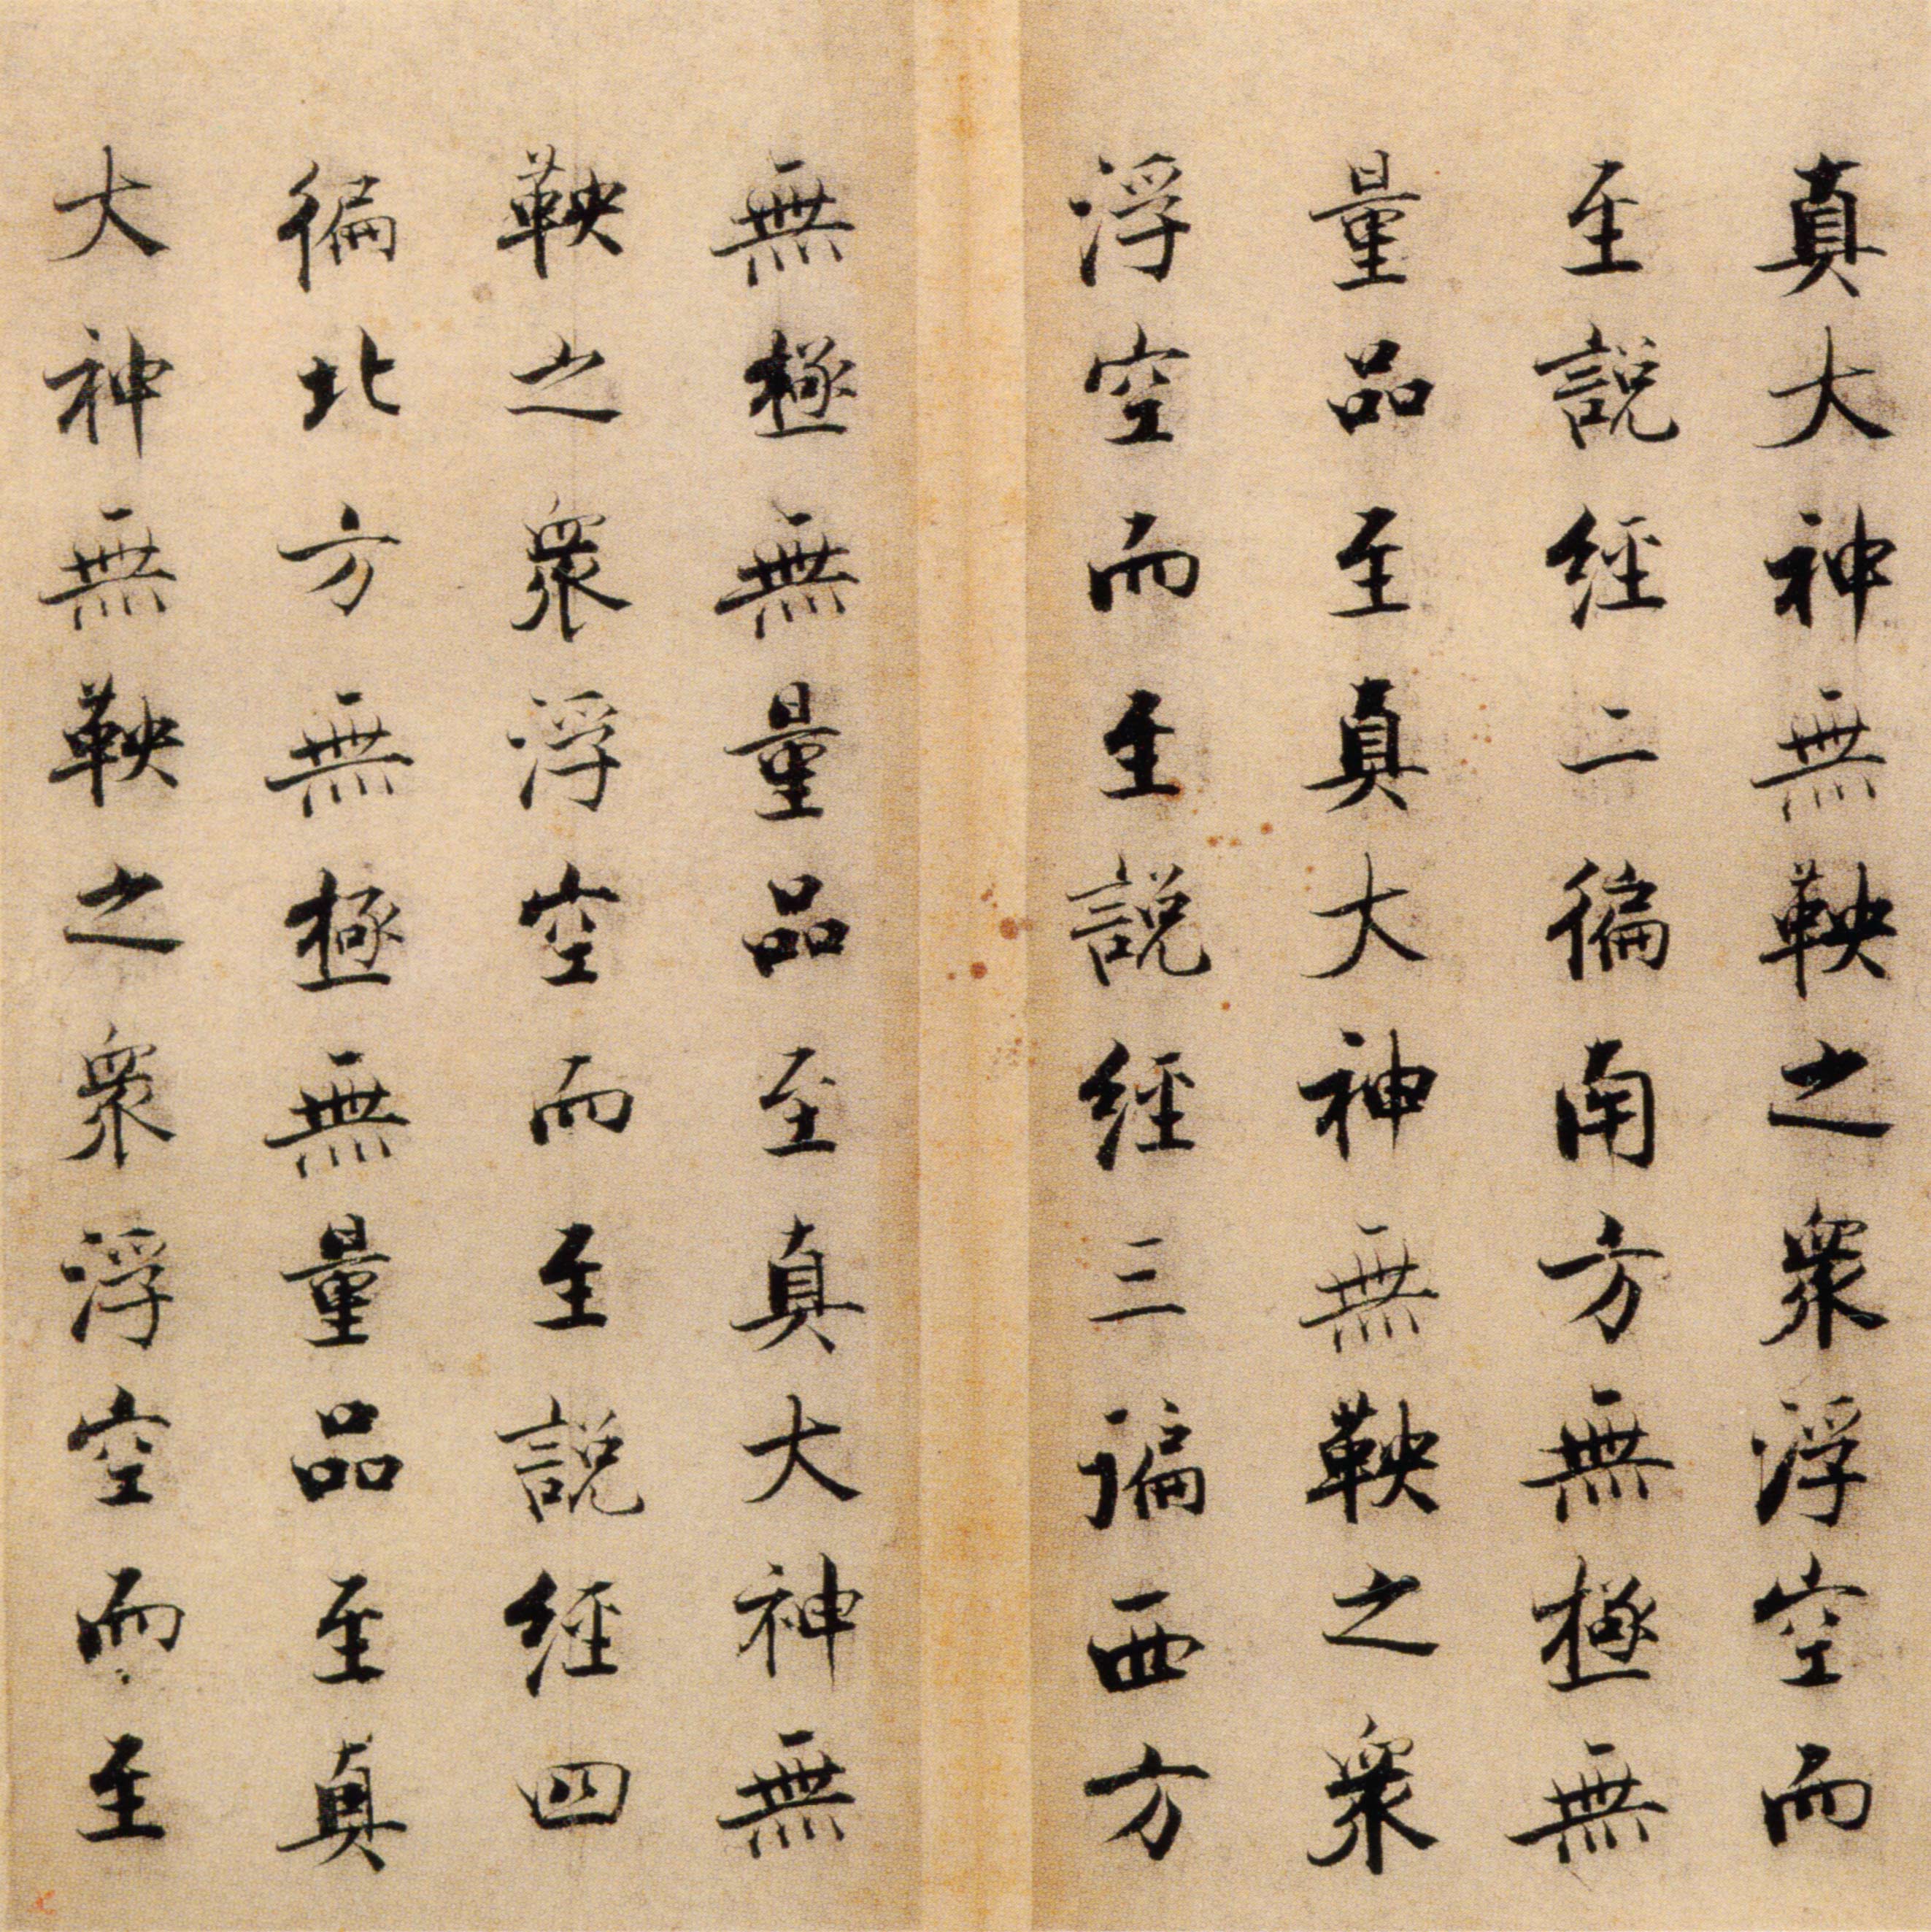 真大神無鞅之衆浮空而
至説經二徧南方無極無
量品至真大神無鞅之衆
浮空而至説經三徧西方
無極無量品至真大神無
鞅之衆浮空而至説經四
徧北方無極無量品至真
大神無鞅之衆浮空而至